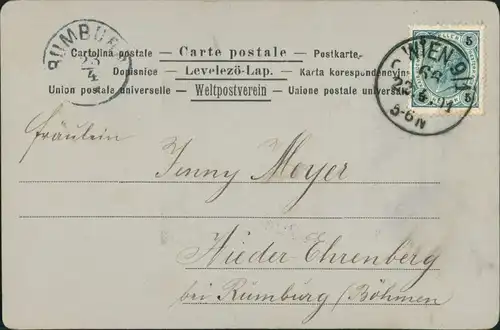 RUMBURG
23
4
Cartolina postale — Carte postale — Postkarte
Dopisnice — Levelezö-Lap. — Karta korespondencyjna
Union postale universelle — Weltpostverein — Unione postale universale
5
WIEN 9/1
66
5
5-6N
Fräulein
Jenny Meyer
Nieder-Ehrenberg
bei Rumburg /Böhmen